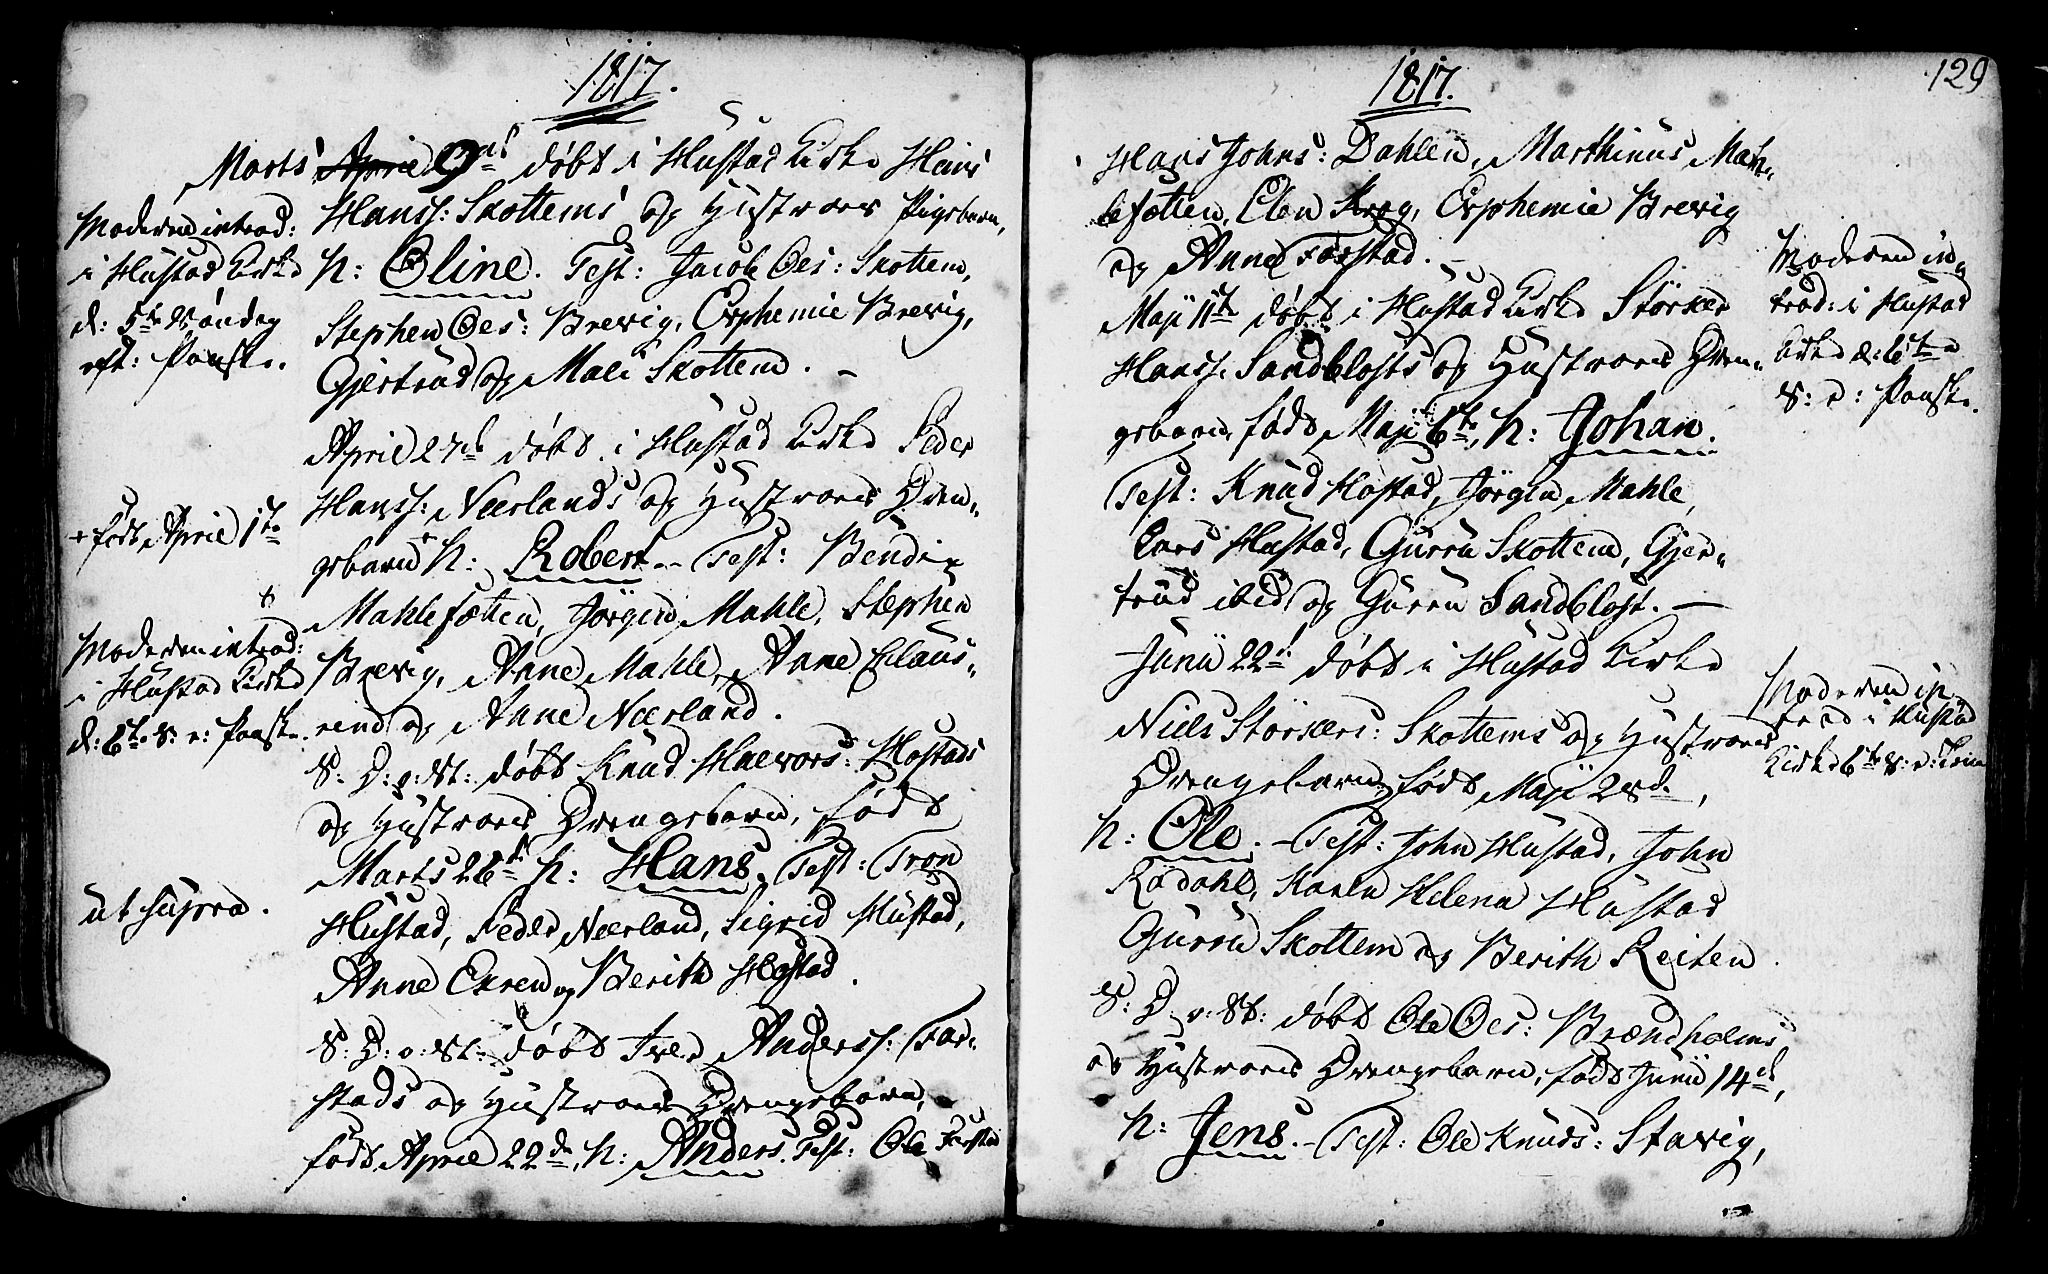 1817.
Marts April 9de døbt i Hustad Kirke Hans
Hanss: Skottems og Hustroes Pigebarn,
n: Oline. Test: Jacob Oes: Skottem,
Stephen Oes: Brevig, Evphemie Brevig,
Gjertrud og Mali Skottem. –
Moderen introd:
i Hustad Kirke
d: 5te Søndag
eft: Paaske.
April 27de døbt i Hustad Kirke Peder
Hanss: Neerlands og Hustroes Dren-
gebarn + n: Robert – Test: Bendix
Mahlefætten, Jörgen Mahle, Stephen
Brevig, Anne Mahle, Anne Claus-
end og Anne Neerland.
+ født April 1te
+
Moderen introd:
i Hustad Kirke
d: 6te S: e: Paaske.
S: D: o: St: døbt Knud Halvors: Hostads
og Hustroes Drengebarn, født
Marts 26de n: Hans. Test: Tron
Hustad, Peder Neerland, Sigrid Hustad,
Anne Exren og Berith Hostad.
ut supra.
S: D: o: St: døbt Iver Anderss: Far-
stads og Hustroes Drengebarn,
født April 22de, n: Anders. Test: Ole Farstad
1817.
129
Hans Johns: Dahlen, Marthinus Mah-
lefætten, Elen Krog, Evphemie Brevig
og Anne Farstad. –
Maji 11te døbt i Hustad Kirke Störker
Hanss: Sandblosts og Hustroes Dren-
gebarn, født Maji 6te, n: Johan.
Test: Knud Hostad, Jörgen Mahle,
Lars Hustad, Gurru Skottem, Gjer-
trud ibid og Gurru Sandblost. –
Moderen in-
trod: i Hustad
Kirke d: 6te
S: e: Paaske.
Junii 22de døbt i Hustad Kirke
Niels Störkers: Skottems og Hustroes
Drengebarn, født Maji 28de,
n: Ole. – Test: John Hustad, John
Rödahl, Karen Helena Hustad
Gurru Skottem og Berith Reiten.
Moderen in
trod i Hustad
Kirke 6te S: e: Trin
S: D: o: St: døbt Ole Oes: Brændholms
og Hustroes Drengebarn, født Junii 14de,
n: Jens. – Test: Ole Knuds: Stavig,